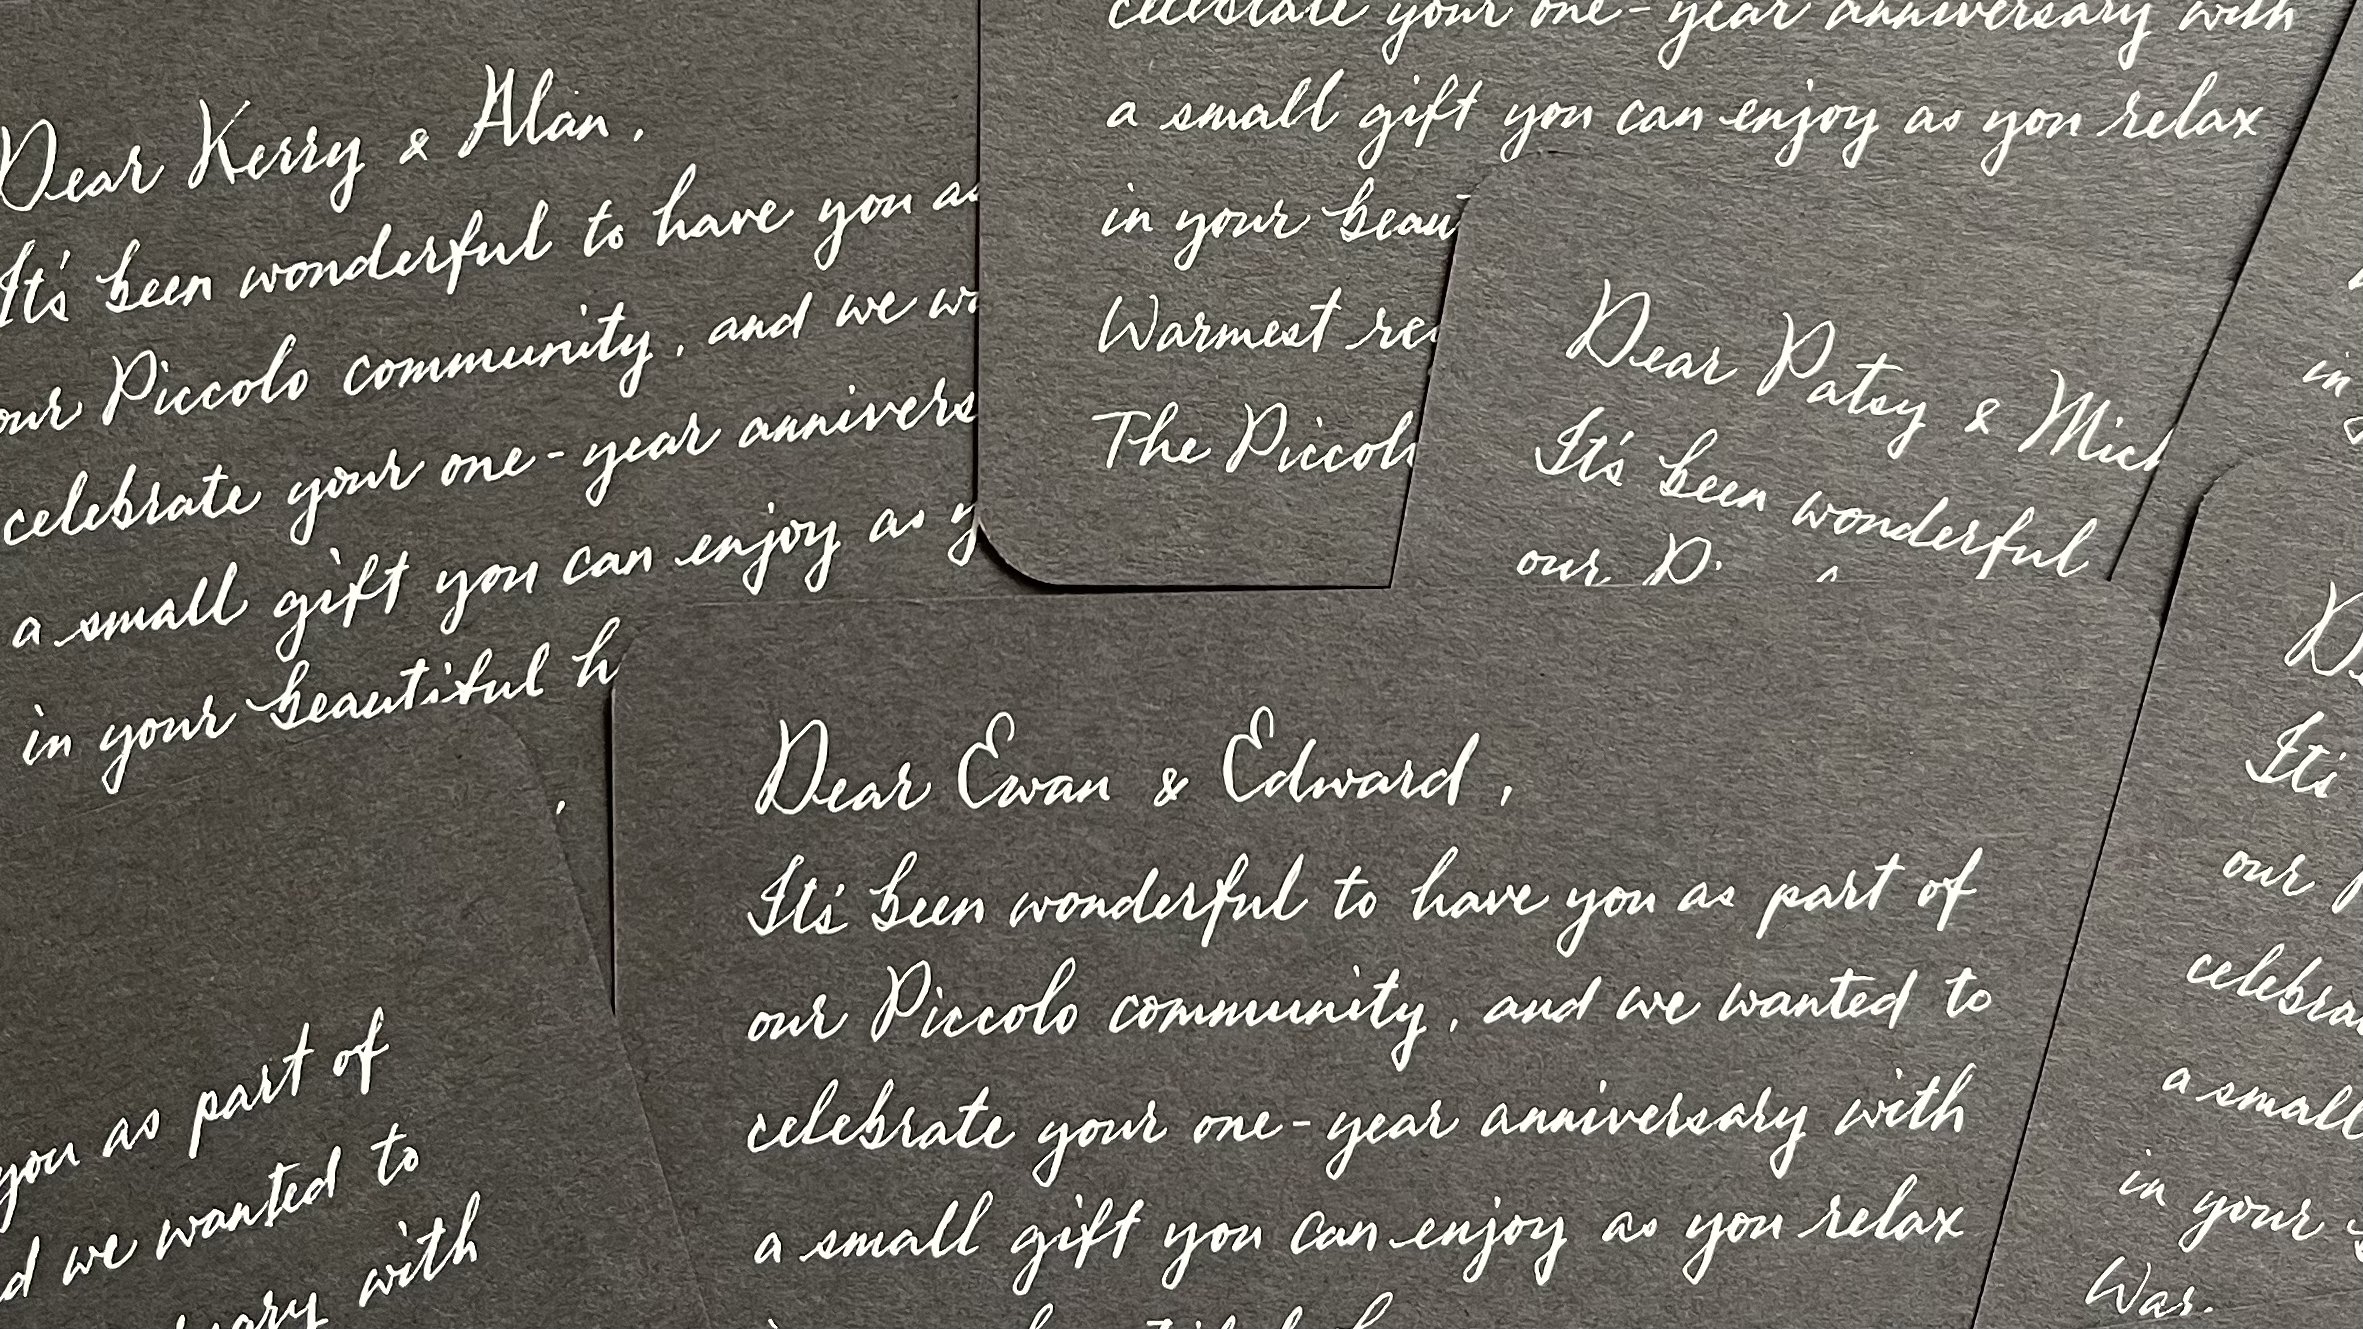 Dear Kerry & Alan,
It's been wonderful to have you as
our Piccolo community, and we
celebrate your one-year
a small gift you can enjoy as
in your beautiful
celebrate your one-year anniversary with
a small gift you can enjoy as you relax
in your
Warmest
The
Dear Patsy &
It's been wonderful
our
in
Dear Ewan & Edward,
It's been wonderful to have you as part of
our Piccolo community, and we wanted to
celebrate your one-year anniversary with
a small gift you can enjoy as you relax
you as part of
we wanted to
with
It's
our
a small
in your